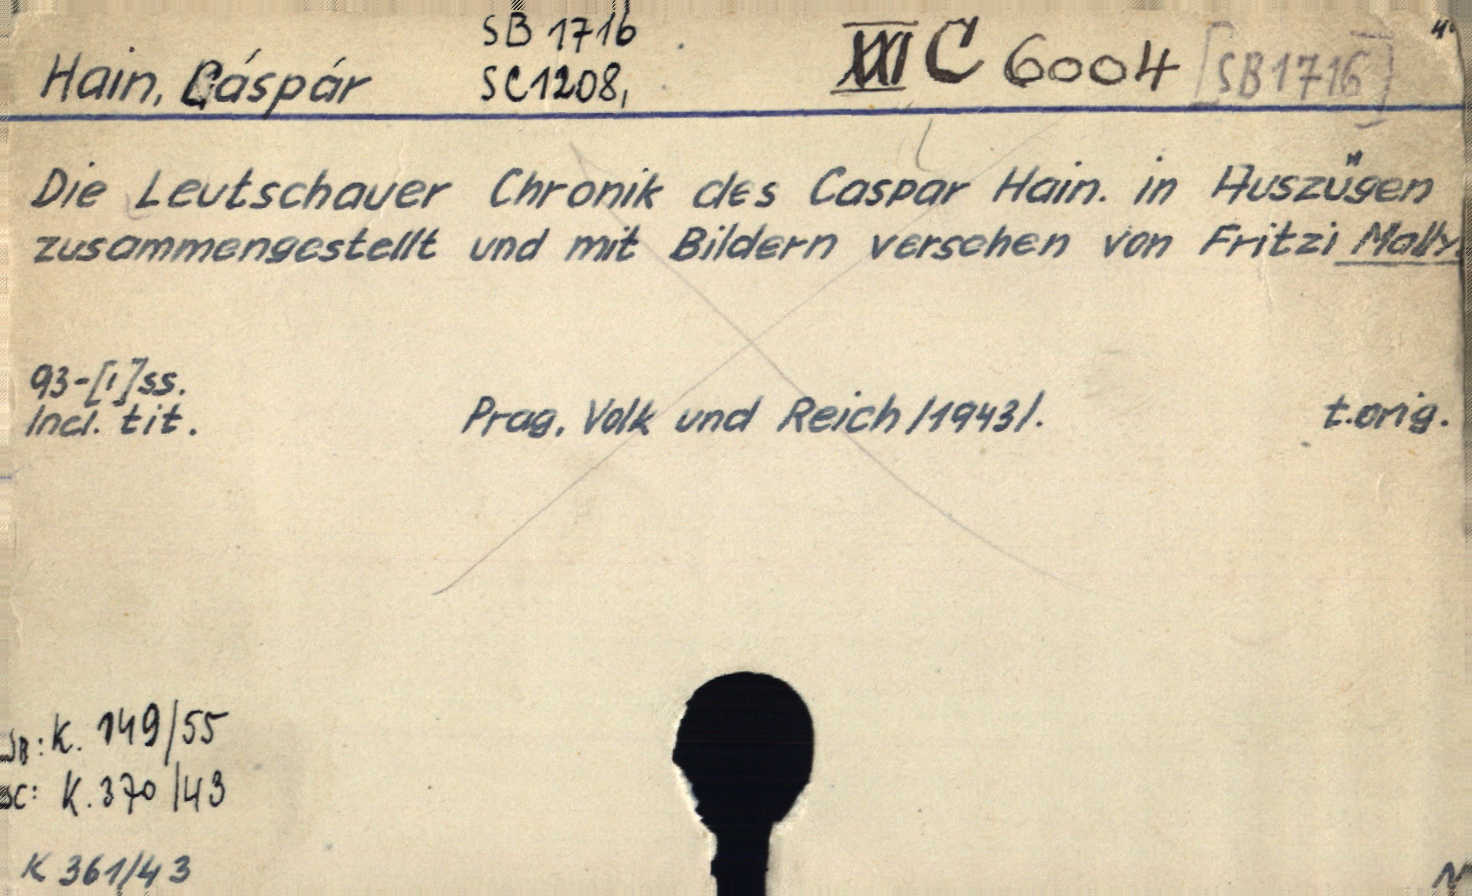 SB 1716
Hain, Gáspár SC1208, C 6004 [SB1716]
Die Leutschauer Chronik des Caspar Hain. in Auszügen
zusammengestellt und mit Bildern versehen von Fritzi Mally.
93-[1]ss.
Incl. tit. Prag, Volk und Reich /1943/. t.orig.
SB: K. 149/55
SC: K. 370/43
K 361/43